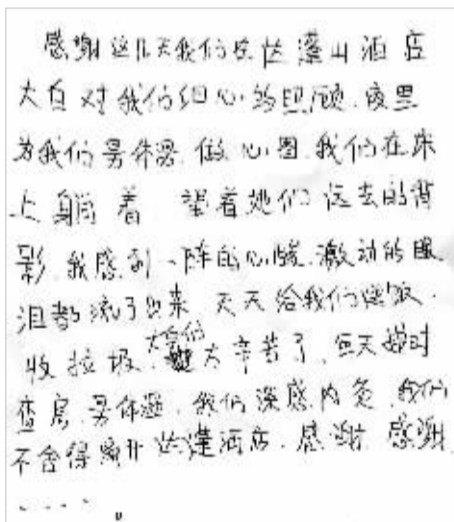 感谢这几天我们在达蓬山酒店
大白对我们细心的照顾.夜里
为我们量体温.做心图.我们在床
上躺着 望着她们远去的背
影.我感到一阵的心酸.激动的眼
泪都流了出来 天天给我们送饭.
收垃圾.大白们太辛苦了.每天按时
查房.量体温.我们深感内灸.我们
不舍得离开达蓬酒店.感谢.感谢
....。